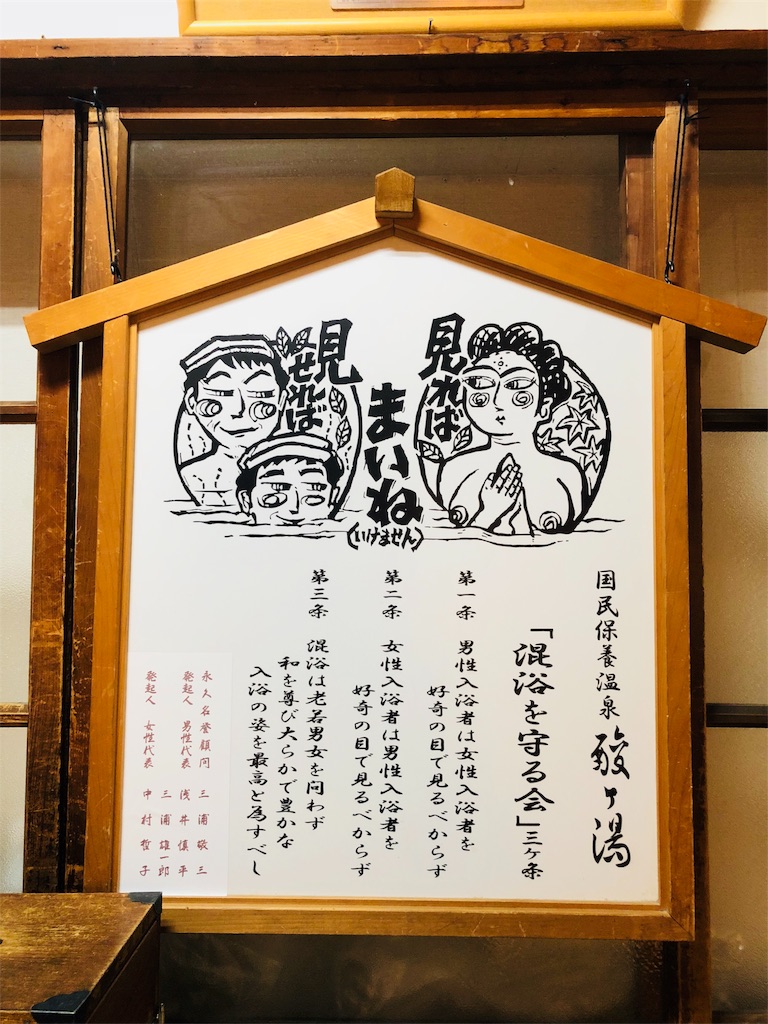 見れば
まいね
(いけません)
見せれば
国民保養温泉 酸ヶ湯
「混浴を守る会」三ヶ条
第一条 男性入浴者は女性入浴者を
好奇の目で見るべからず
第二条 女性入浴者は男性入浴者を
好奇の目で見るべからず
第三条 混浴は老若男女を問わず
和を尊び大らかで豊かな
入浴の姿を最高と為すべし
永久名誉顧問 三浦敬三
三浦雄一郎
発起人 男性代表 浅井慎平
発起人 女性代表 中村哲子